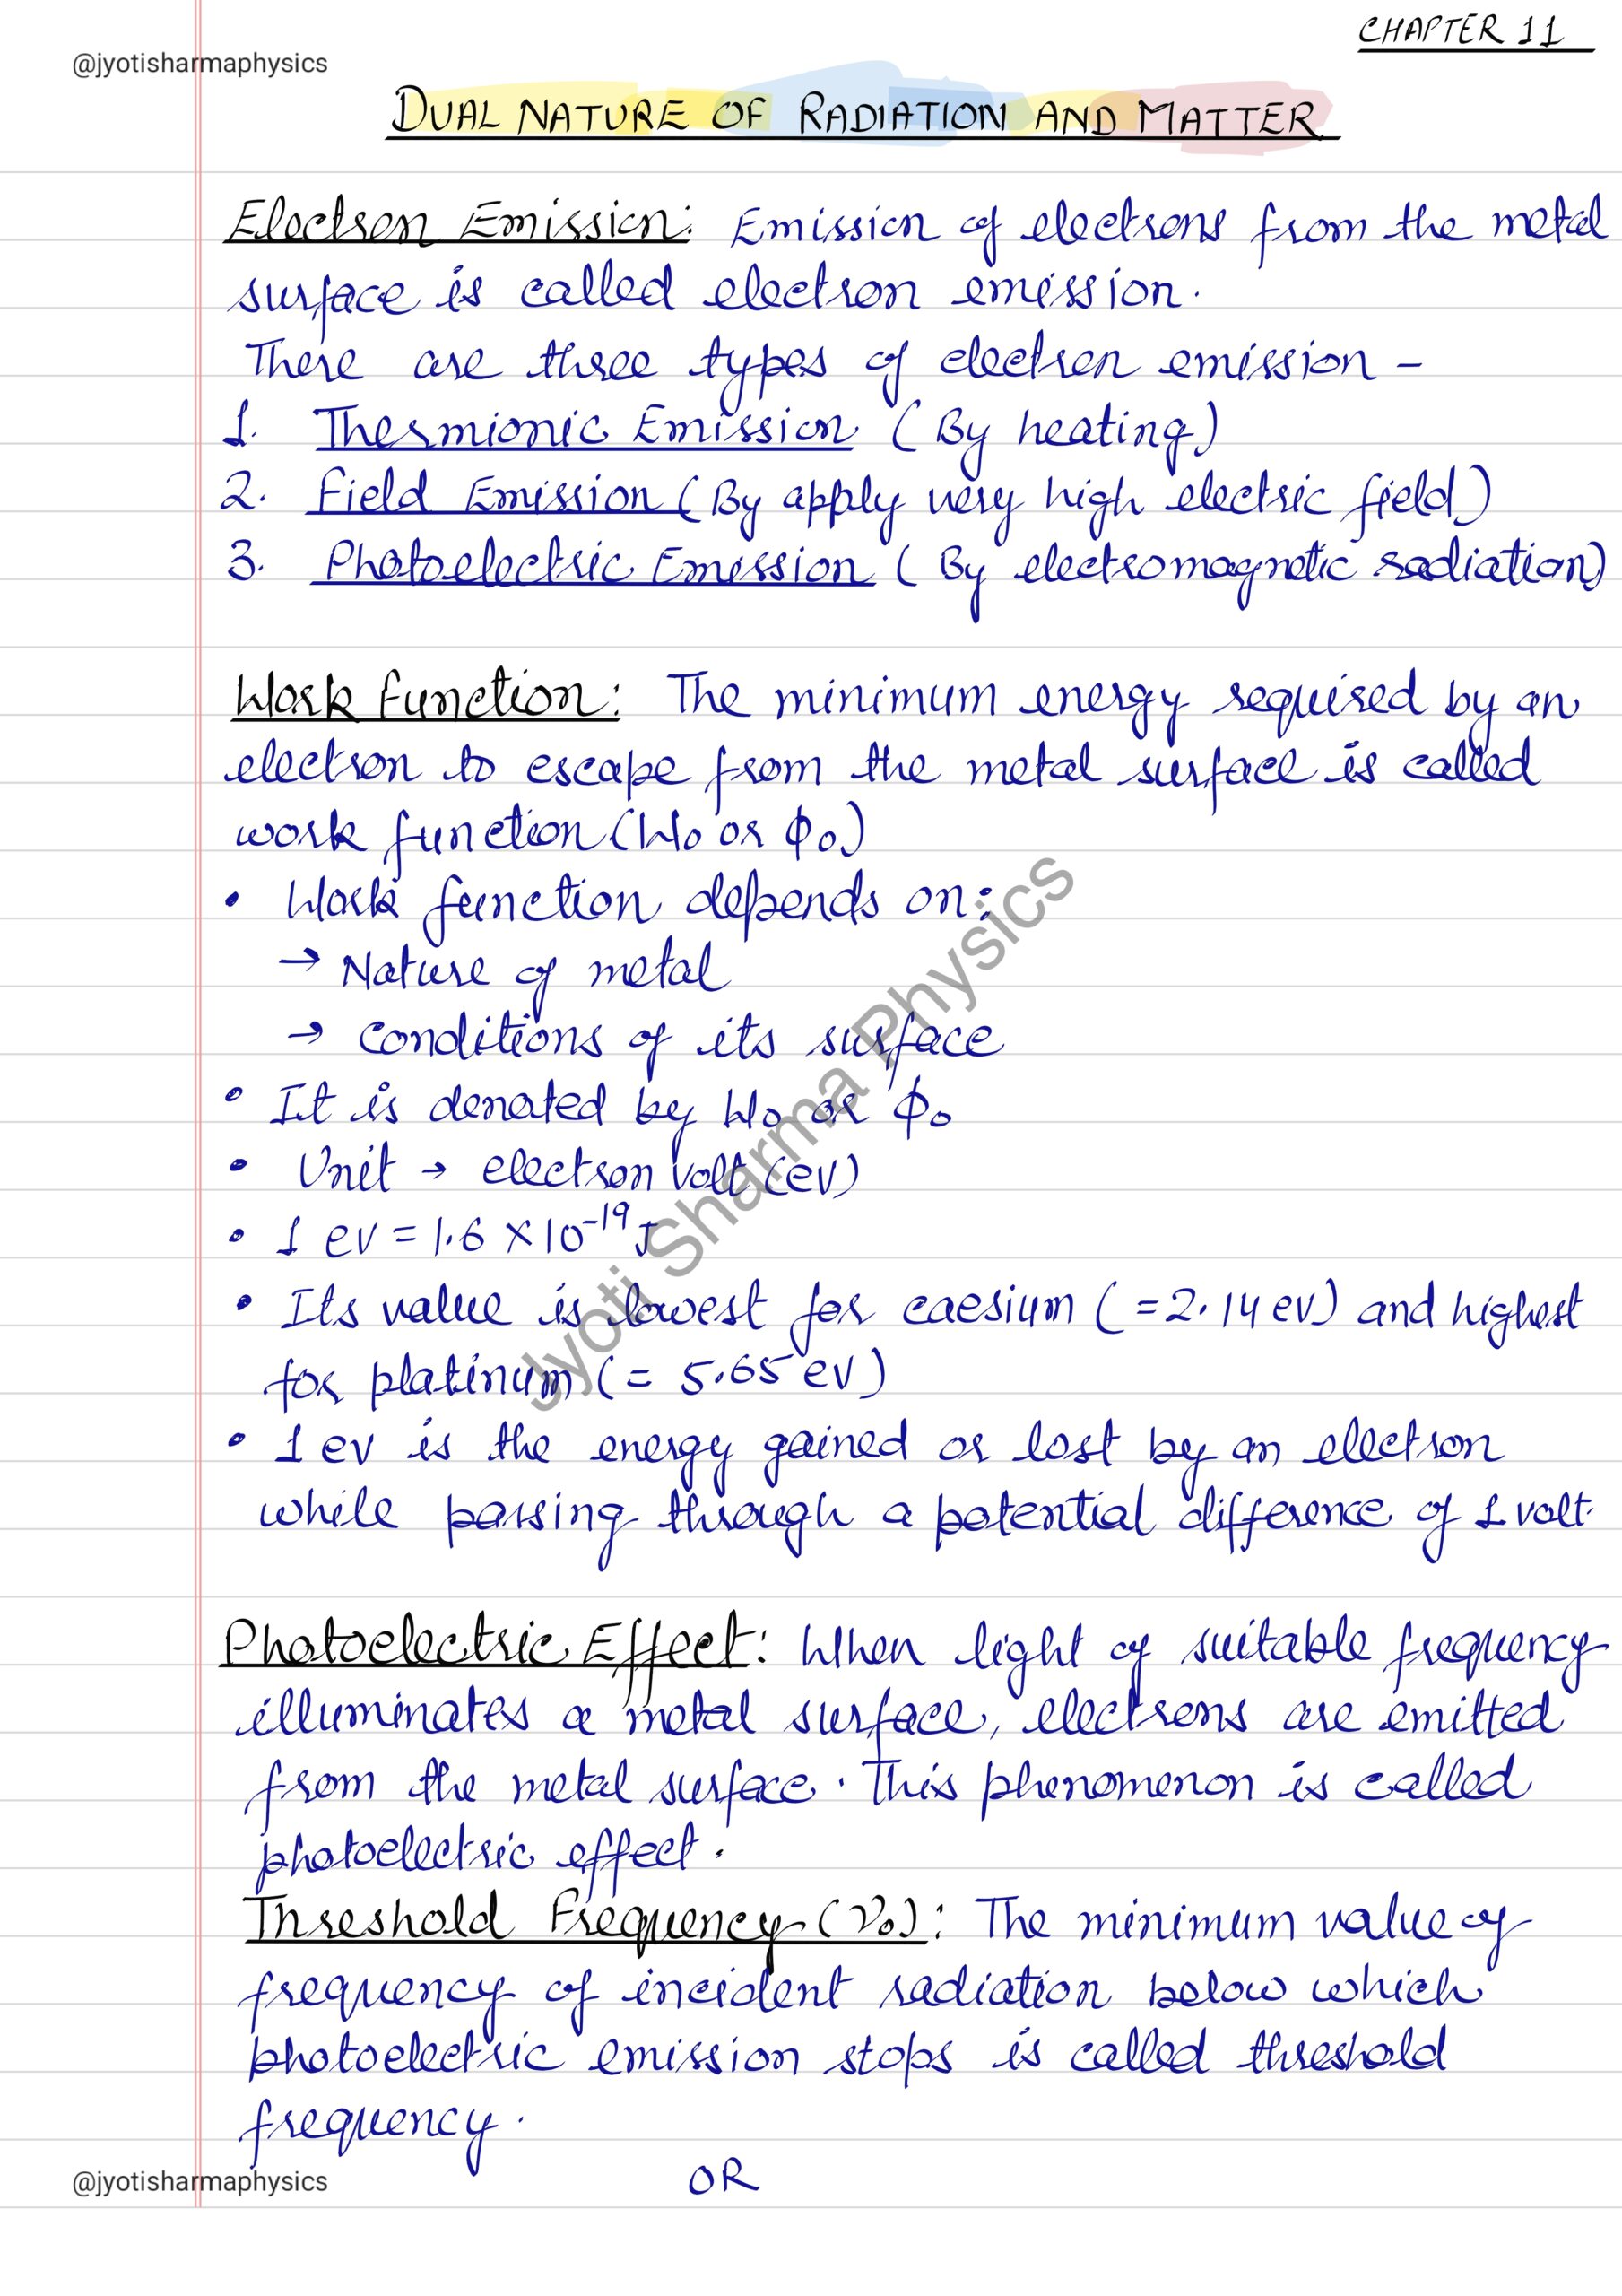 CHAPTER 11
@jyotisharmaphysics
DUAL NATURE OF RADIATION AND MATTER
Electron Emission: Emission of electrons from the metal
surface is called electron emission.
There are three types of electron emission -
1. Thermionic Emission (By heating)
2. Field Emission (By apply very high electric field)
3. Photoelectric Emission (By electromagnetic radiation)
Work Function: The minimum energy required by an
electron to escape from the metal surface is called
work function (W0 or ϕ0)
• Work function depends on:
→ Nature of metal
→ Conditions of its surface
• It is denoted by W0 or ϕ0
• Unit → electron volt (ev)
• 1 ev = 1.6 × 10⁻¹⁹ J
• Its value is lowest for caesium (=2.14 ev) and highest
for platinum (= 5.65 ev)
• 1 ev is the energy gained or lost by an electron
while passing through a potential difference of 1 volt.
Photoelectric Effect: When light of suitable frequency
illuminates a metal surface, electrons are emitted
from the metal surface. This phenomenon is called
photoelectric effect.
Threshold Frequency (ν0): The minimum value of
frequency of incident radiation below which
photoelectric emission stops is called threshold
frequency.
OR
@jyotisharmaphysics
Jyoti Sharma Physics